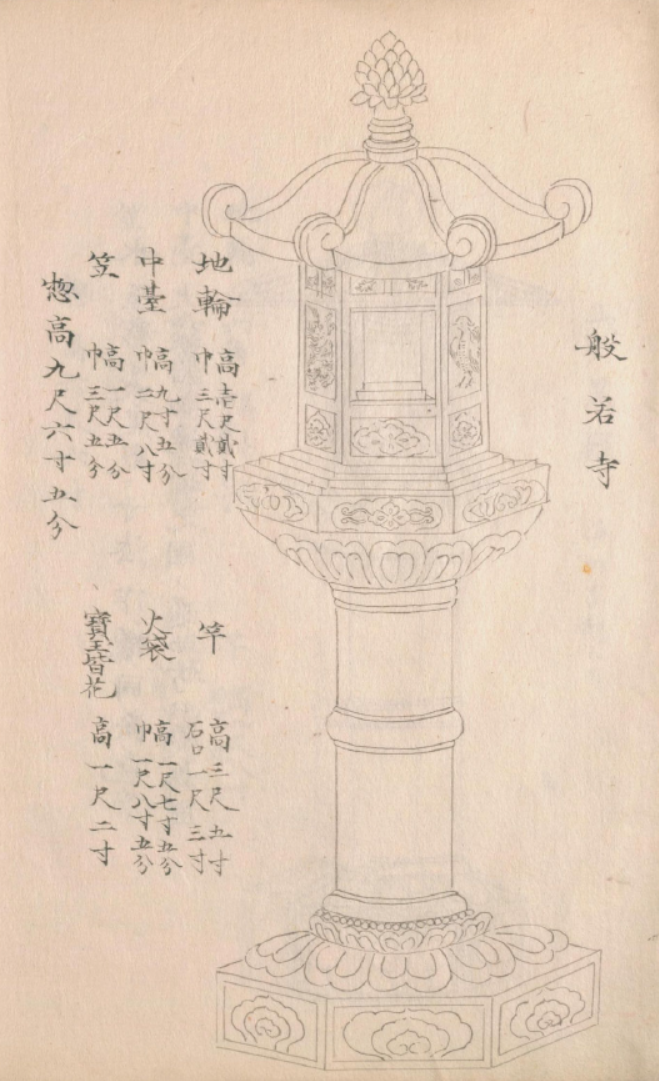 般若寺
地輪
高壱尺貳寸
巾三尺貳寸
中臺
高九寸五分
巾二尺八寸
笠
高一尺五分
巾三尺五分
惣高九尺六寸五分
竿
高三尺九寸
石口一尺三寸
火袋
高一尺七寸五分
巾一尺八寸五分
花
高一尺二寸